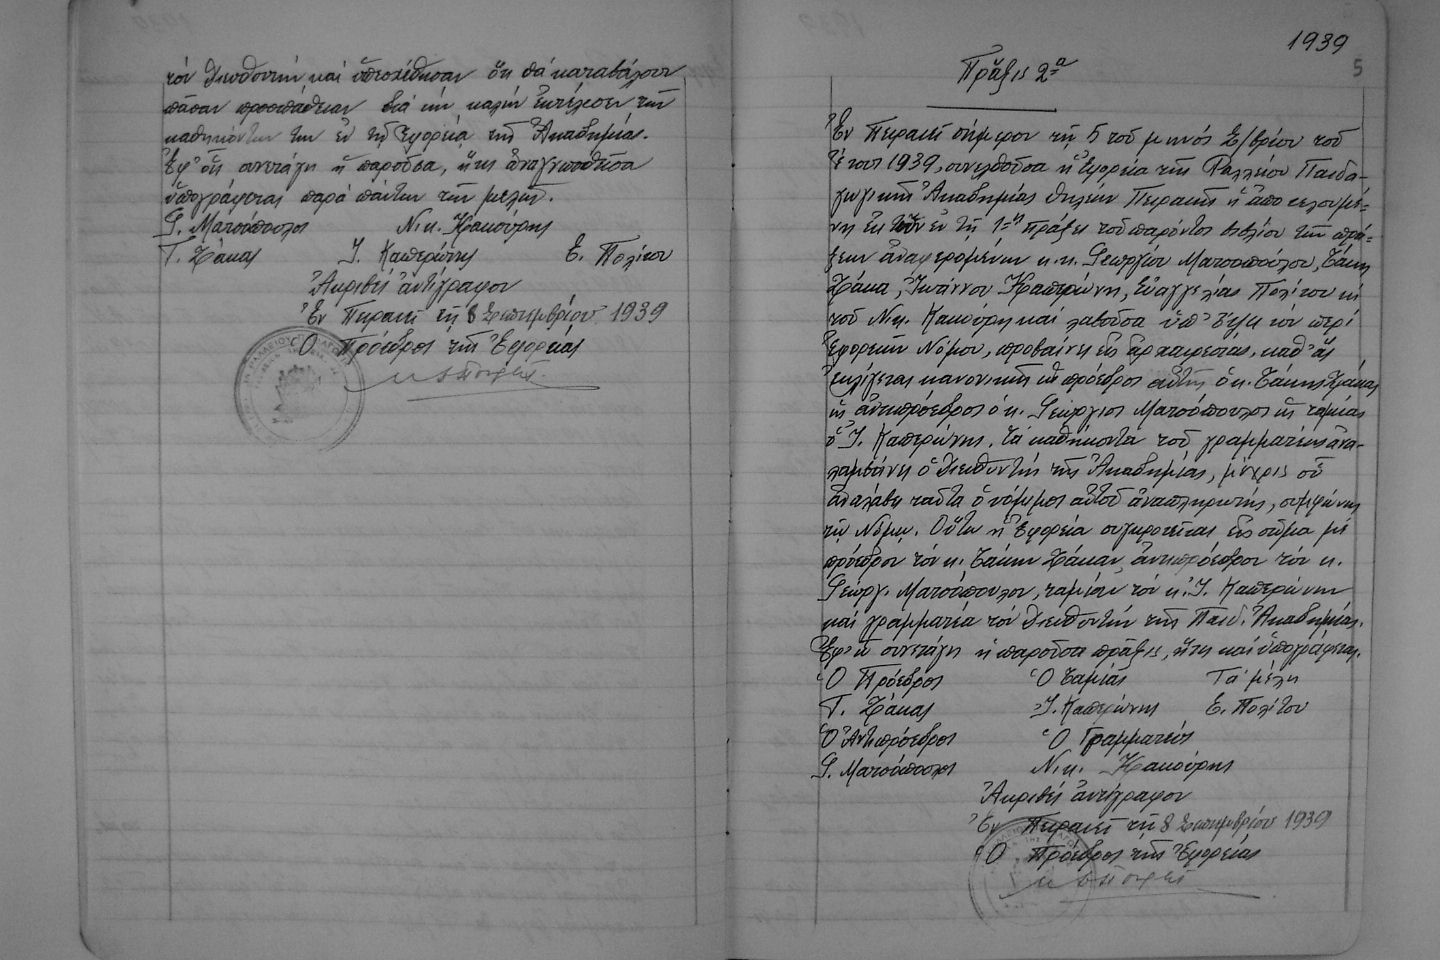 τὸν Διευθυντὴν καὶ ὑπεσχέθησαν ὅτι θὰ καταβάλουν
πᾶσαν προσπάθειαν διὰ τὴν καλὴν ἐκτέλεσιν τῶν
καθηκόντων των ἐν τῇ Ἐφορείᾳ τῆς Ἀκαδημίας.
Ἐφ' ᾧ συνετάγη ἡ παροῦσα, ἥτις ἀναγνωσθεῖσα
ὑπογράφεται παρὰ πάντων τῶν μελῶν.
Γ. Ματσόπουλος Νικ. Κακούρης
Τ. Ζάκας Ἰ. Καπερώνης Ε. Πολίτου
Ἀκριβὲς ἀντίγραφον
Ἐν Πειραιεῖ τῇ 8 Σεπτεμβρίου 1939
Ὁ Πρόεδρος τῆς Ἐφορείας
1939
5
Πρᾶξις 2α
Ἐν Πειραιεῖ σήμερον τῇ 5 τοῦ μηνὸς Σ/βρίου τοῦ
ἔτους 1939, συνελθοῦσα ἡ Ἐφορεία τῆς Ραλλείου Παιδα-
γωγικῆς Ἀκαδημίας θηλέων Πειραιῶς ἡ ἀποτελουμέ-
νη ἐκ τῶν ἐν τῇ 1ῃ πράξει τοῦ παρόντος βιβλίου τῶν πρά-
ξεων ἀναφερομένων κ.κ. Γεωργίου Ματσοπούλου, Τάκη
Ζάκα, Ἰωάννου Καπερώνη, Εὐαγγελίας Πολίτου καὶ
τοῦ Νικ. Κακούρη καὶ λαβοῦσα ὑπ' ὄψει τὸν περὶ
Ἐφορειῶν Νόμον, προβαίνει εἰς ἀρχαιρεσίας, καθ' ἃς
ἐκλέγεται κανονικῶς ὡς πρόεδρος αὐτῆς ὁ κ. Τάκης Ζάκας
ὡς ἀντιπρόεδρος ὁ κ. Γεώργιος Ματσόπουλος ὡς ταμίας
ὁ Ἰ. Καπερώνης. Τὰ καθήκοντα τοῦ γραμματέως ἀνα-
λαμβάνει ὁ Διευθυντὴς τῆς Ἀκαδημίας, μέχρις οὗ
ἀναλάβῃ ταῦτα ὁ νόμιμος αὐτοῦ ἀναπληρωτής, συμφώνως
τῷ Νόμῳ. Οὕτω ἡ Ἐφορεία συγκροτεῖται εἰς σῶμα μὲ
πρόεδρον τὸν κ. Τάκην Ζάκαν, ἀντιπρόεδρον τὸν κ.
Γεώργ. Ματσόπουλον, ταμίαν τὸν κ. Ἰ. Καπερώνην
καὶ γραμματέα τὸν Διευθυντὴν τῆς Παιδ. Ἀκαδημίας.
Ἐφ' ᾧ συνετάγη ἡ παροῦσα πρᾶξις, ἥτις καὶ ὑπογράφεται.
Ὁ Πρόεδρος Ὁ Ταμίας Τὰ μέλη
Τ. Ζάκας Ἰ. Καπερώνης Ε. Πολίτου
Ὁ Ἀντιπρόεδρος Ὁ Γραμματεὺς
Γ. Ματσόπουλος Νικ. Κακούρης
Ἀκριβὲς ἀντίγραφον
Ἐν Πειραιεῖ τῇ 8 Σεπτεμβρίου 1939
Ὁ Πρόεδρος τῆς Ἐφορείας